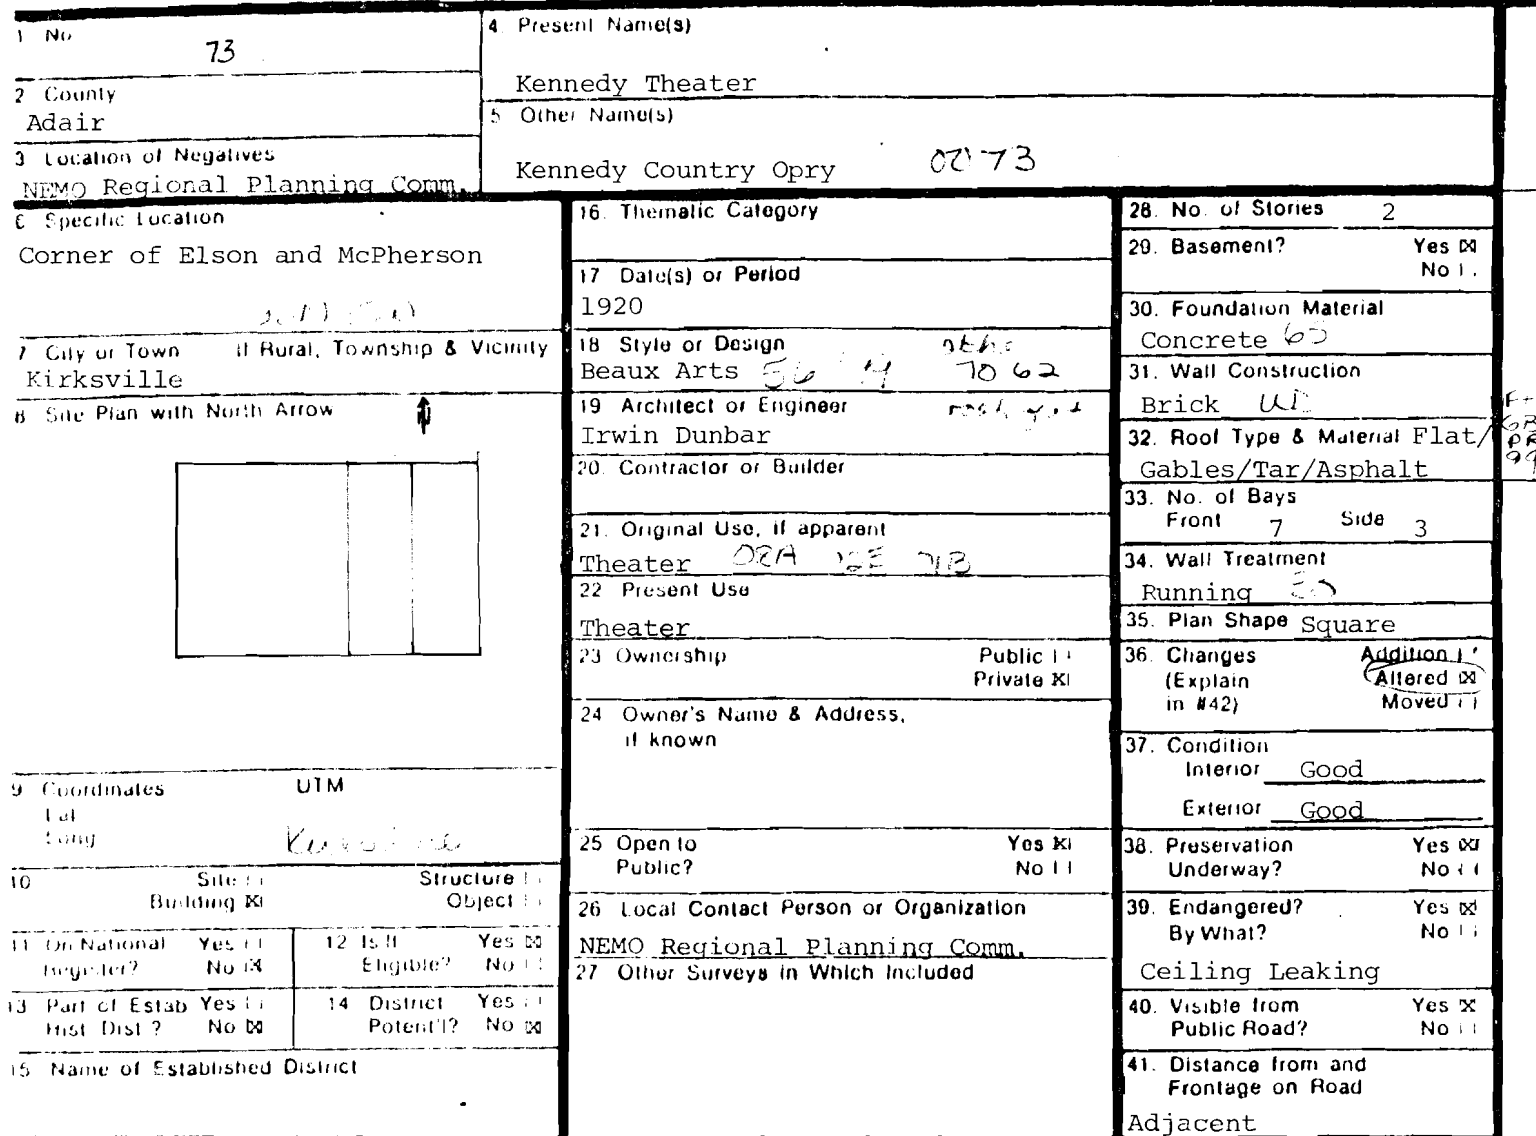 1 No
73
2 County
Adair
3 Location of Negatives
NEMO Regional Planning Comm.
4 Present Name(s)
Kennedy Theater
5 Other Name(s)
Kennedy Country Opry
6 Specific Location
Corner of Elson and McPherson
7 City or Town If Rural, Township & Vicinity
Kirksville
8 Site Plan with North Arrow
9 Coordinates UTM
Lat
Long
10 Site Structure
Building Object
11 On National Yes
Register? No
12 Is It Yes
Eligible? No
13 Part of Estab Yes
Hist Dist? No
14 District Yes
Potent'l? No
15 Name of Established District
16. Thematic Category
17 Date(s) or Period
1920
18 Style or Design
Beaux Arts 70 62
19 Architect or Engineer
Irwin Dunbar
20. Contractor or Builder
21. Original Use, if apparent
Theater
22 Present Use
Theater
23 Ownership Public
Private
24 Owner's Name & Address,
if known
25 Open to Yes
Public? No
26 Local Contact Person or Organization
NEMO Regional Planning Comm.
27 Other Surveys in Which Included
28. No. of Stories 2
29. Basement? Yes
No
30. Foundation Material
Concrete
31. Wall Construction
Brick
32. Roof Type & Material Flat/
Gables/Tar/Asphalt
33. No. of Bays
Front 7 Side 3
34. Wall Treatment
Running
35. Plan Shape Square
36. Changes Addition
(Explain Altered
in #42) Moved
37. Condition
Interior Good
Exterior Good
38. Preservation Yes
Underway? No
39. Endangered? Yes
By What? No
Ceiling Leaking
40. Visible from Yes
Public Road? No
41. Distance from and
Frontage on Road
Adjacent